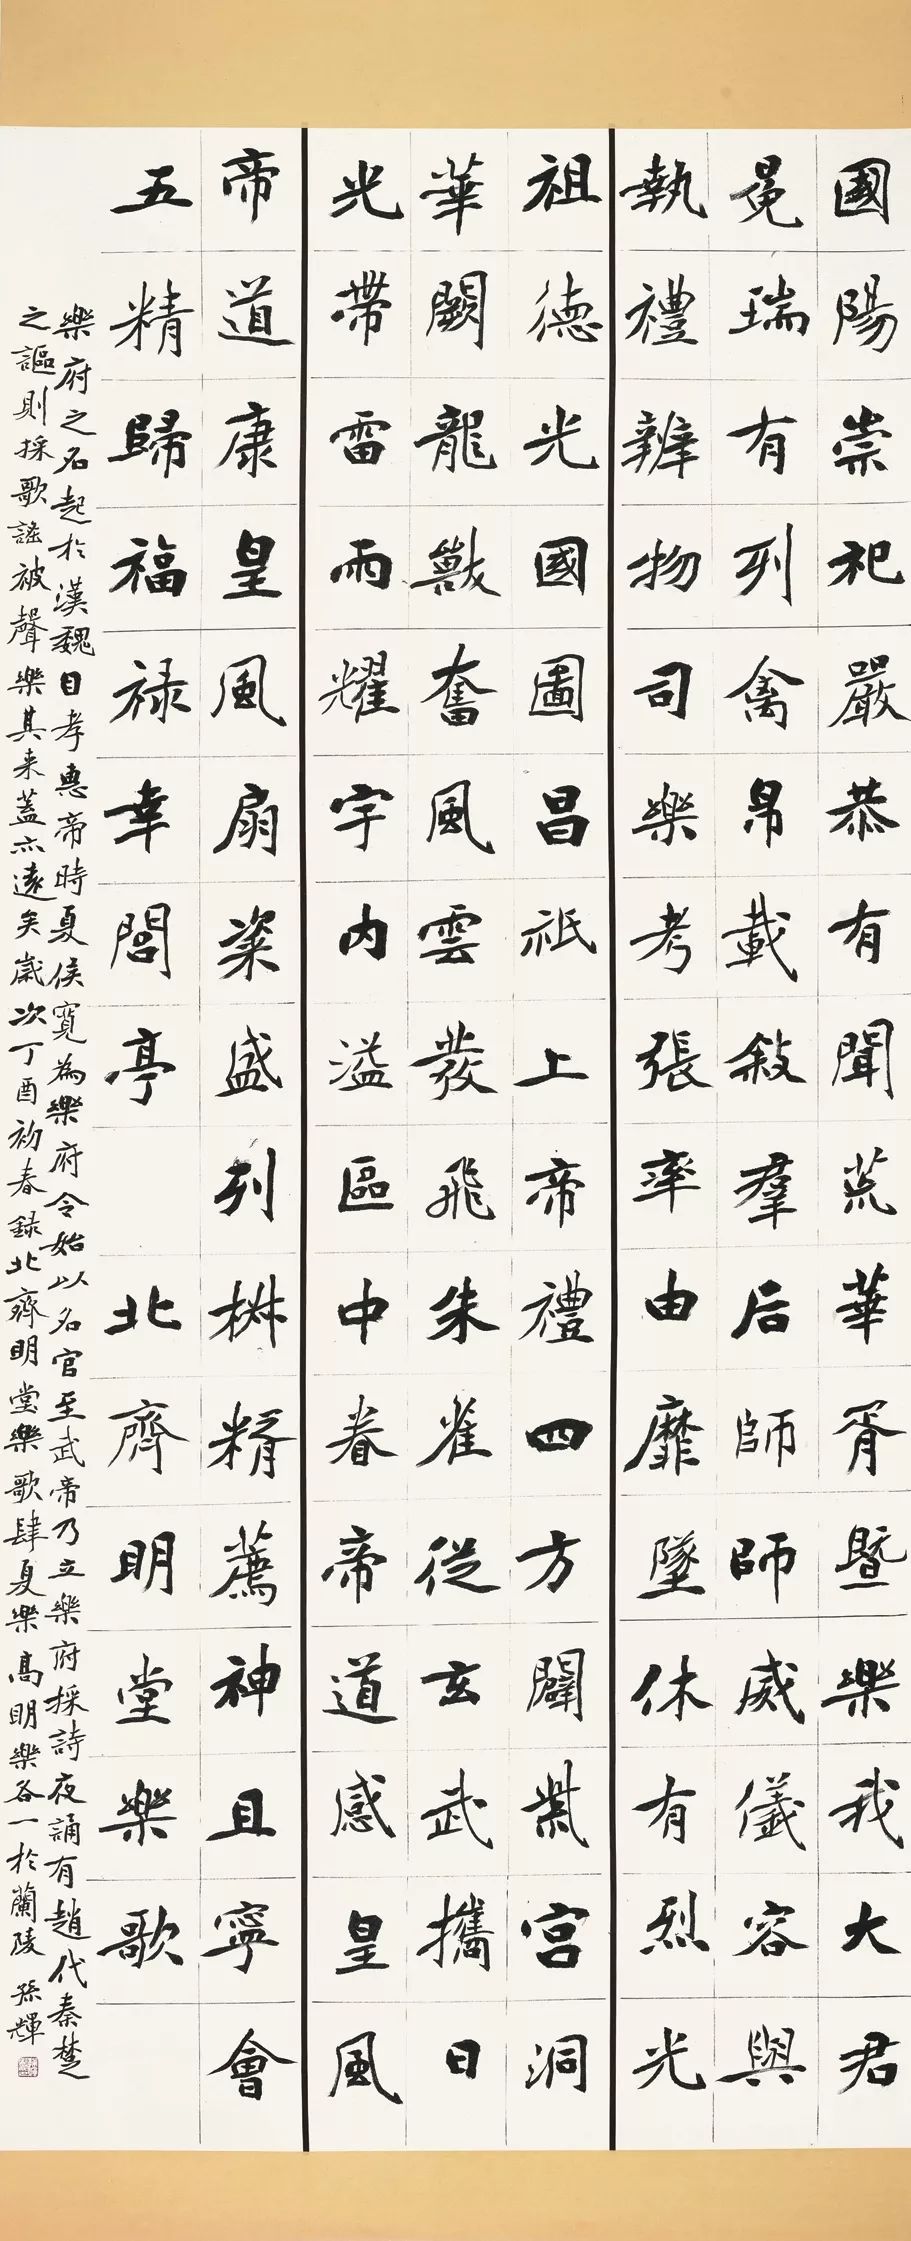 國陽崇祀嚴恭有聞荒華胥暨樂我大君
冕瑞有列禽帛載敘羣后師師威儀容與
執禮辨物司樂考張率由靡墜休有烈光
祖德光國圖昌祇上帝禮四方闢紫宮洞
華闕龍獸奮風雲發飛朱雀從玄武攜日
光帶雷雨耀宇內溢區中眷帝道感皇風
帝道康皇風扇粢盛列椒糈薦神且寧會
五精歸福禄幸閤亭
北齊明堂樂歌
樂府之名起於漢魏自孝惠帝時夏侯寬為樂府令始以名官至武帝乃立樂府採詩夜誦有趙代秦楚
之謳則採歌謠被聲樂其来蓋亦遠矣歲次丁酉初春録北齊明堂樂歌肆夏樂高明樂各一於蘭陵 孫輝